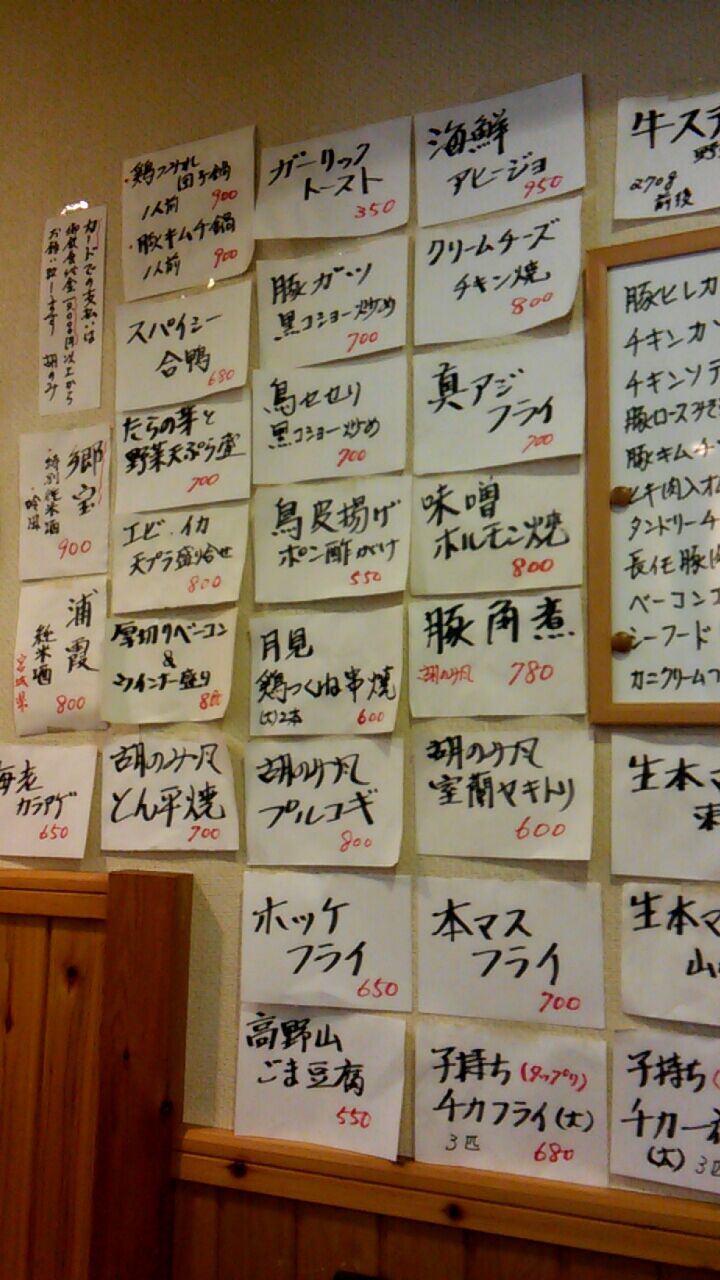 カードでの支払いは
御飲食代金
以上から
お願い致します 胡のみ
郷宝
特別純米酒
・吟風
900
浦霞
純米酒
宮城県
800
海老
カラアゲ
650
・鶏つみれ
団子鍋
1人前 900
・豚キムチ鍋
1人前 900
スパイシー
合鴨
680
たらの芽と
野菜天ぷら盛
700
エビ・イカ
天プラ盛り合せ
800
厚切りベーコン
&
ウインナー盛り
胡のみ風
とん平焼
700
ガーリック
トースト
350
豚ガツ
黒コショー炒め
700
鳥セセリ
黒コショー炒め
700
鳥皮揚げ
ポン酢がけ
550
月見
鶏つくね串焼
(大)2本 600
胡のみ風
プルコギ
800
ホッケ
フライ
650
高野山
ごま豆腐
550
海鮮
アヒージョ
950
クリームチーズ
チキン焼
800
真アジ
フライ
700
味噌
ホルモン焼
800
豚角煮
胡のみ風 780
胡のみ風
室蘭ヤキトリ
600
本マス
フライ
700
子持ち(タップリ)
チカフライ(大)
3匹 680
牛ステ
270g
前後
豚ヒレカ
チキンカ
チキンソテ
豚ロースみそ
豚キムチ
トキ肉入オム
タンドリーチ
長任豚肉
ベーコンコ
シーフード
カニクリームコ
生本マ
生本マ
山
子持ち(
チカ一
(大) 3匹